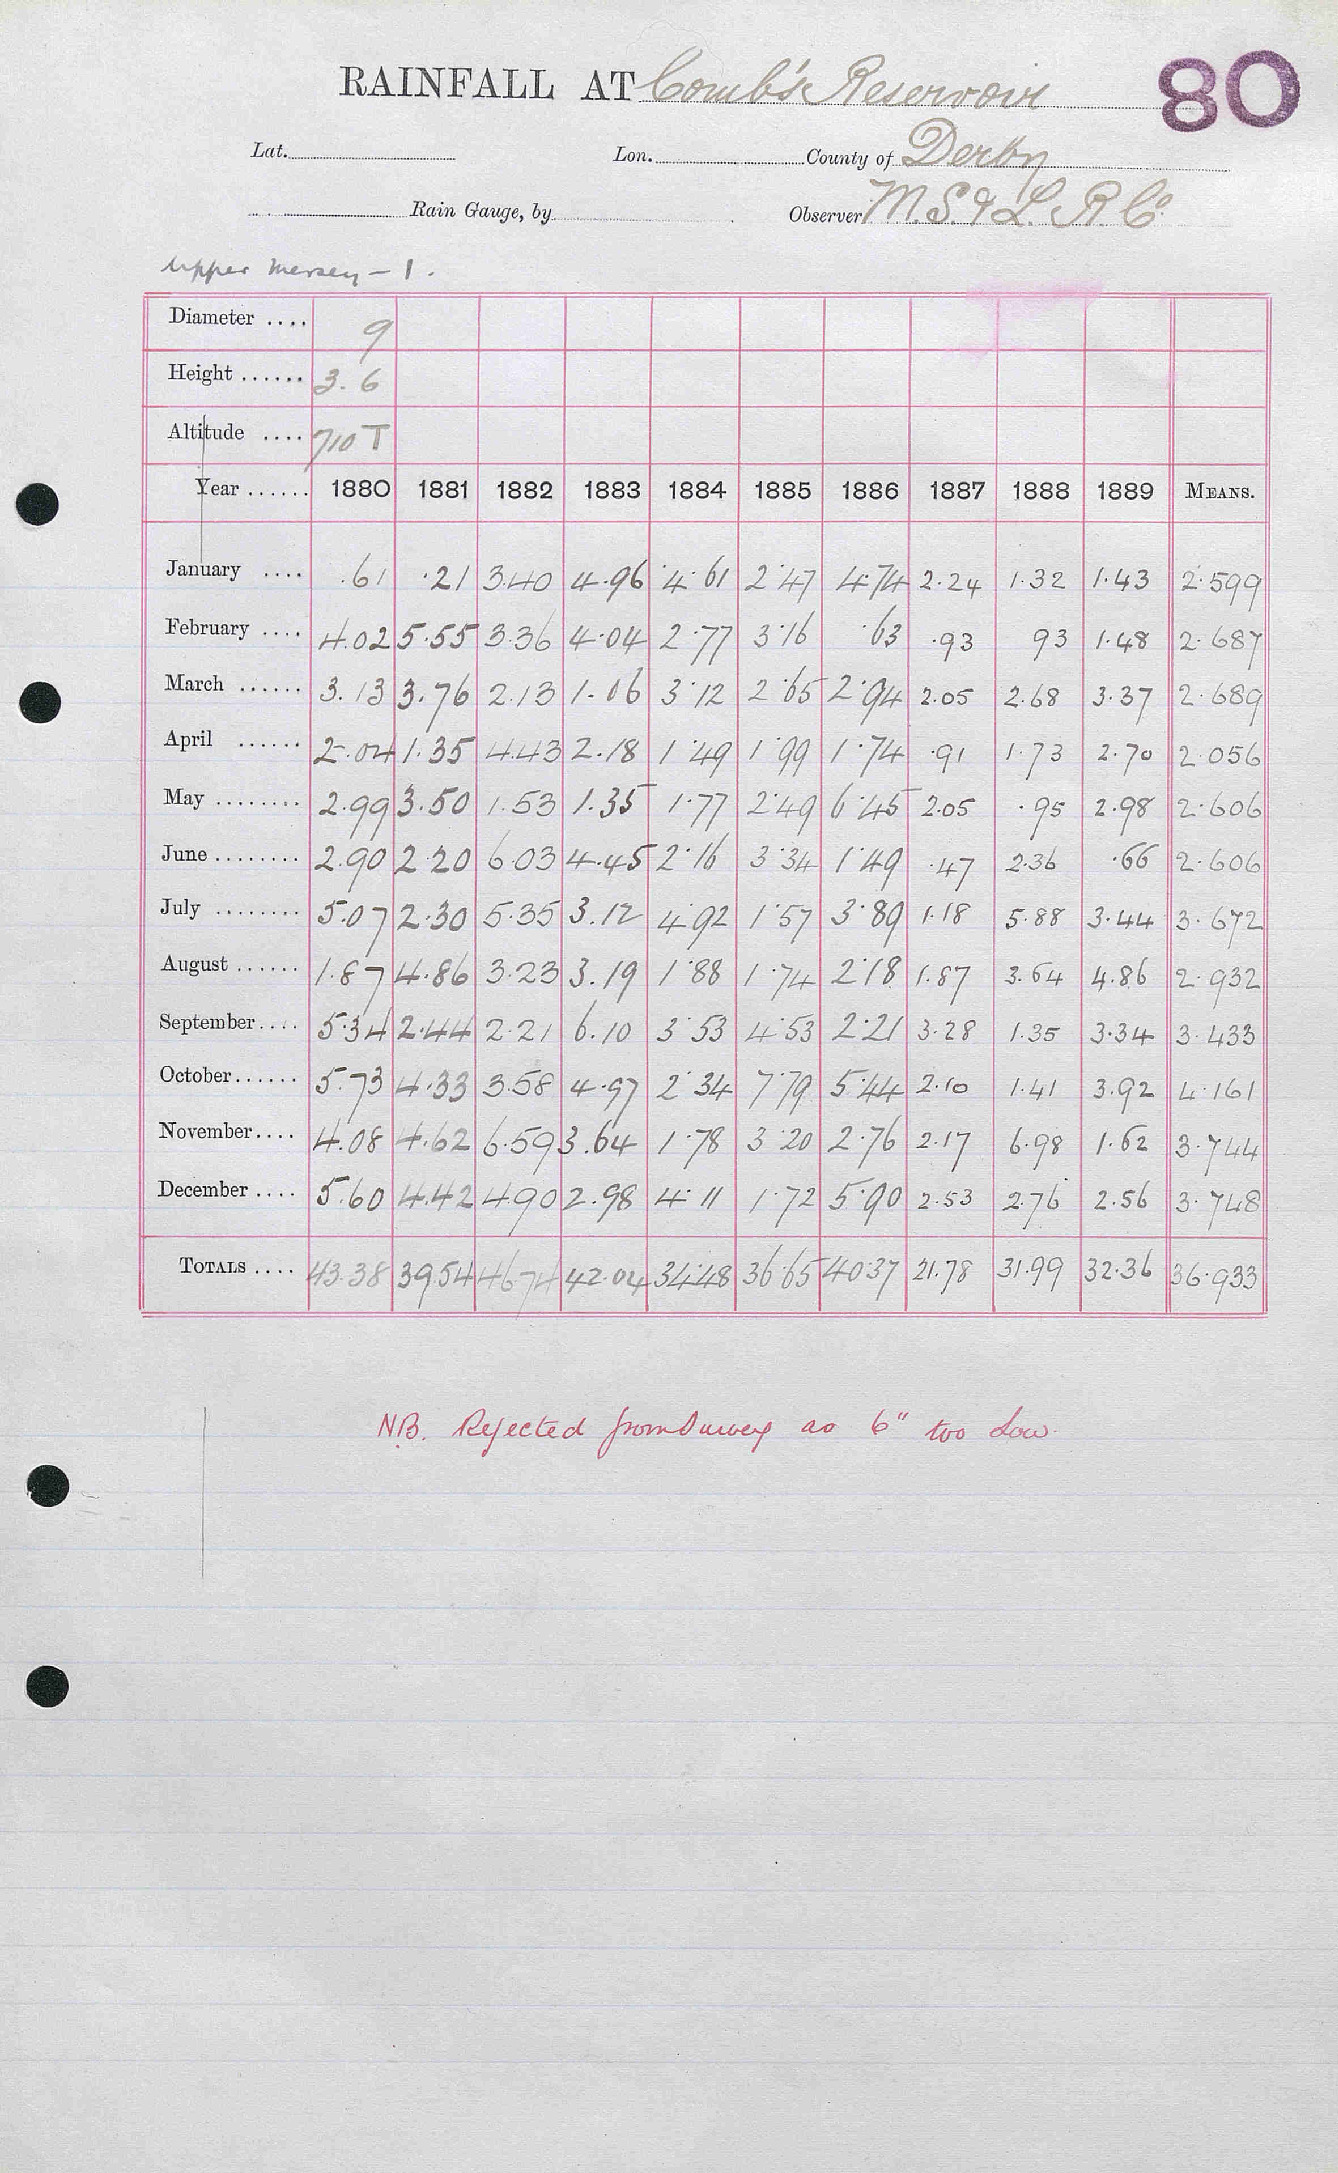 RAINFALL AT Comb's Reservoir 80
Lat. Lon. County of Derby
Rain Gauge, by Observer M. S. & L. R. Co.
Upper Mersey - 1.
Diameter .... 9
Height ...... 3.6
Altitude .... 710 T
Year ...... 1880 1881 1882 1883 1884 1885 1886 1887 1888 1889 MEANS.
January .... .61 .21 3.40 4.96 4.61 2.47 4.74 2.24 1.32 1.43 2.599
February .... 4.02 5.55 3.36 4.04 2.77 3.16 .63 .93 93 1.48 2.687
March ...... 3.13 3.76 2.13 1.06 3.12 2.65 2.94 2.05 2.68 3.37 2.689
April ...... 2.04 1.35 4.43 2.18 1.49 1.99 1.74 .91 1.73 2.70 2.056
May ........ 2.99 3.50 1.53 1.35 1.77 2.49 6.45 2.05 .95 2.98 2.606
June ........ 2.90 2.20 6.03 4.45 2.16 3.34 1.49 .47 2.36 .66 2.606
July ........ 5.07 2.30 5.35 3.12 4.92 1.57 3.89 1.18 5.88 3.44 3.672
August ...... 1.87 4.86 3.23 3.19 1.88 1.74 2.18 1.87 3.64 4.86 2.932
September.... 5.34 2.44 2.21 6.10 3.53 4.53 2.21 3.28 1.35 3.34 3.433
October...... 5.73 4.33 3.58 4.97 2.34 7.79 5.44 2.10 1.41 3.92 4.161
November.... 4.08 4.62 6.59 3.64 1.78 3.20 2.76 2.17 6.98 1.62 3.744
December .... 5.60 4.42 4.90 2.98 4.11 1.72 5.90 2.53 2.76 2.56 3.748
TOTALS .... 43.38 39.54 46.74 42.04 34.48 36.65 40.37 21.78 31.99 32.36 36.933
NB. Rejected from Survey as 6" too Low